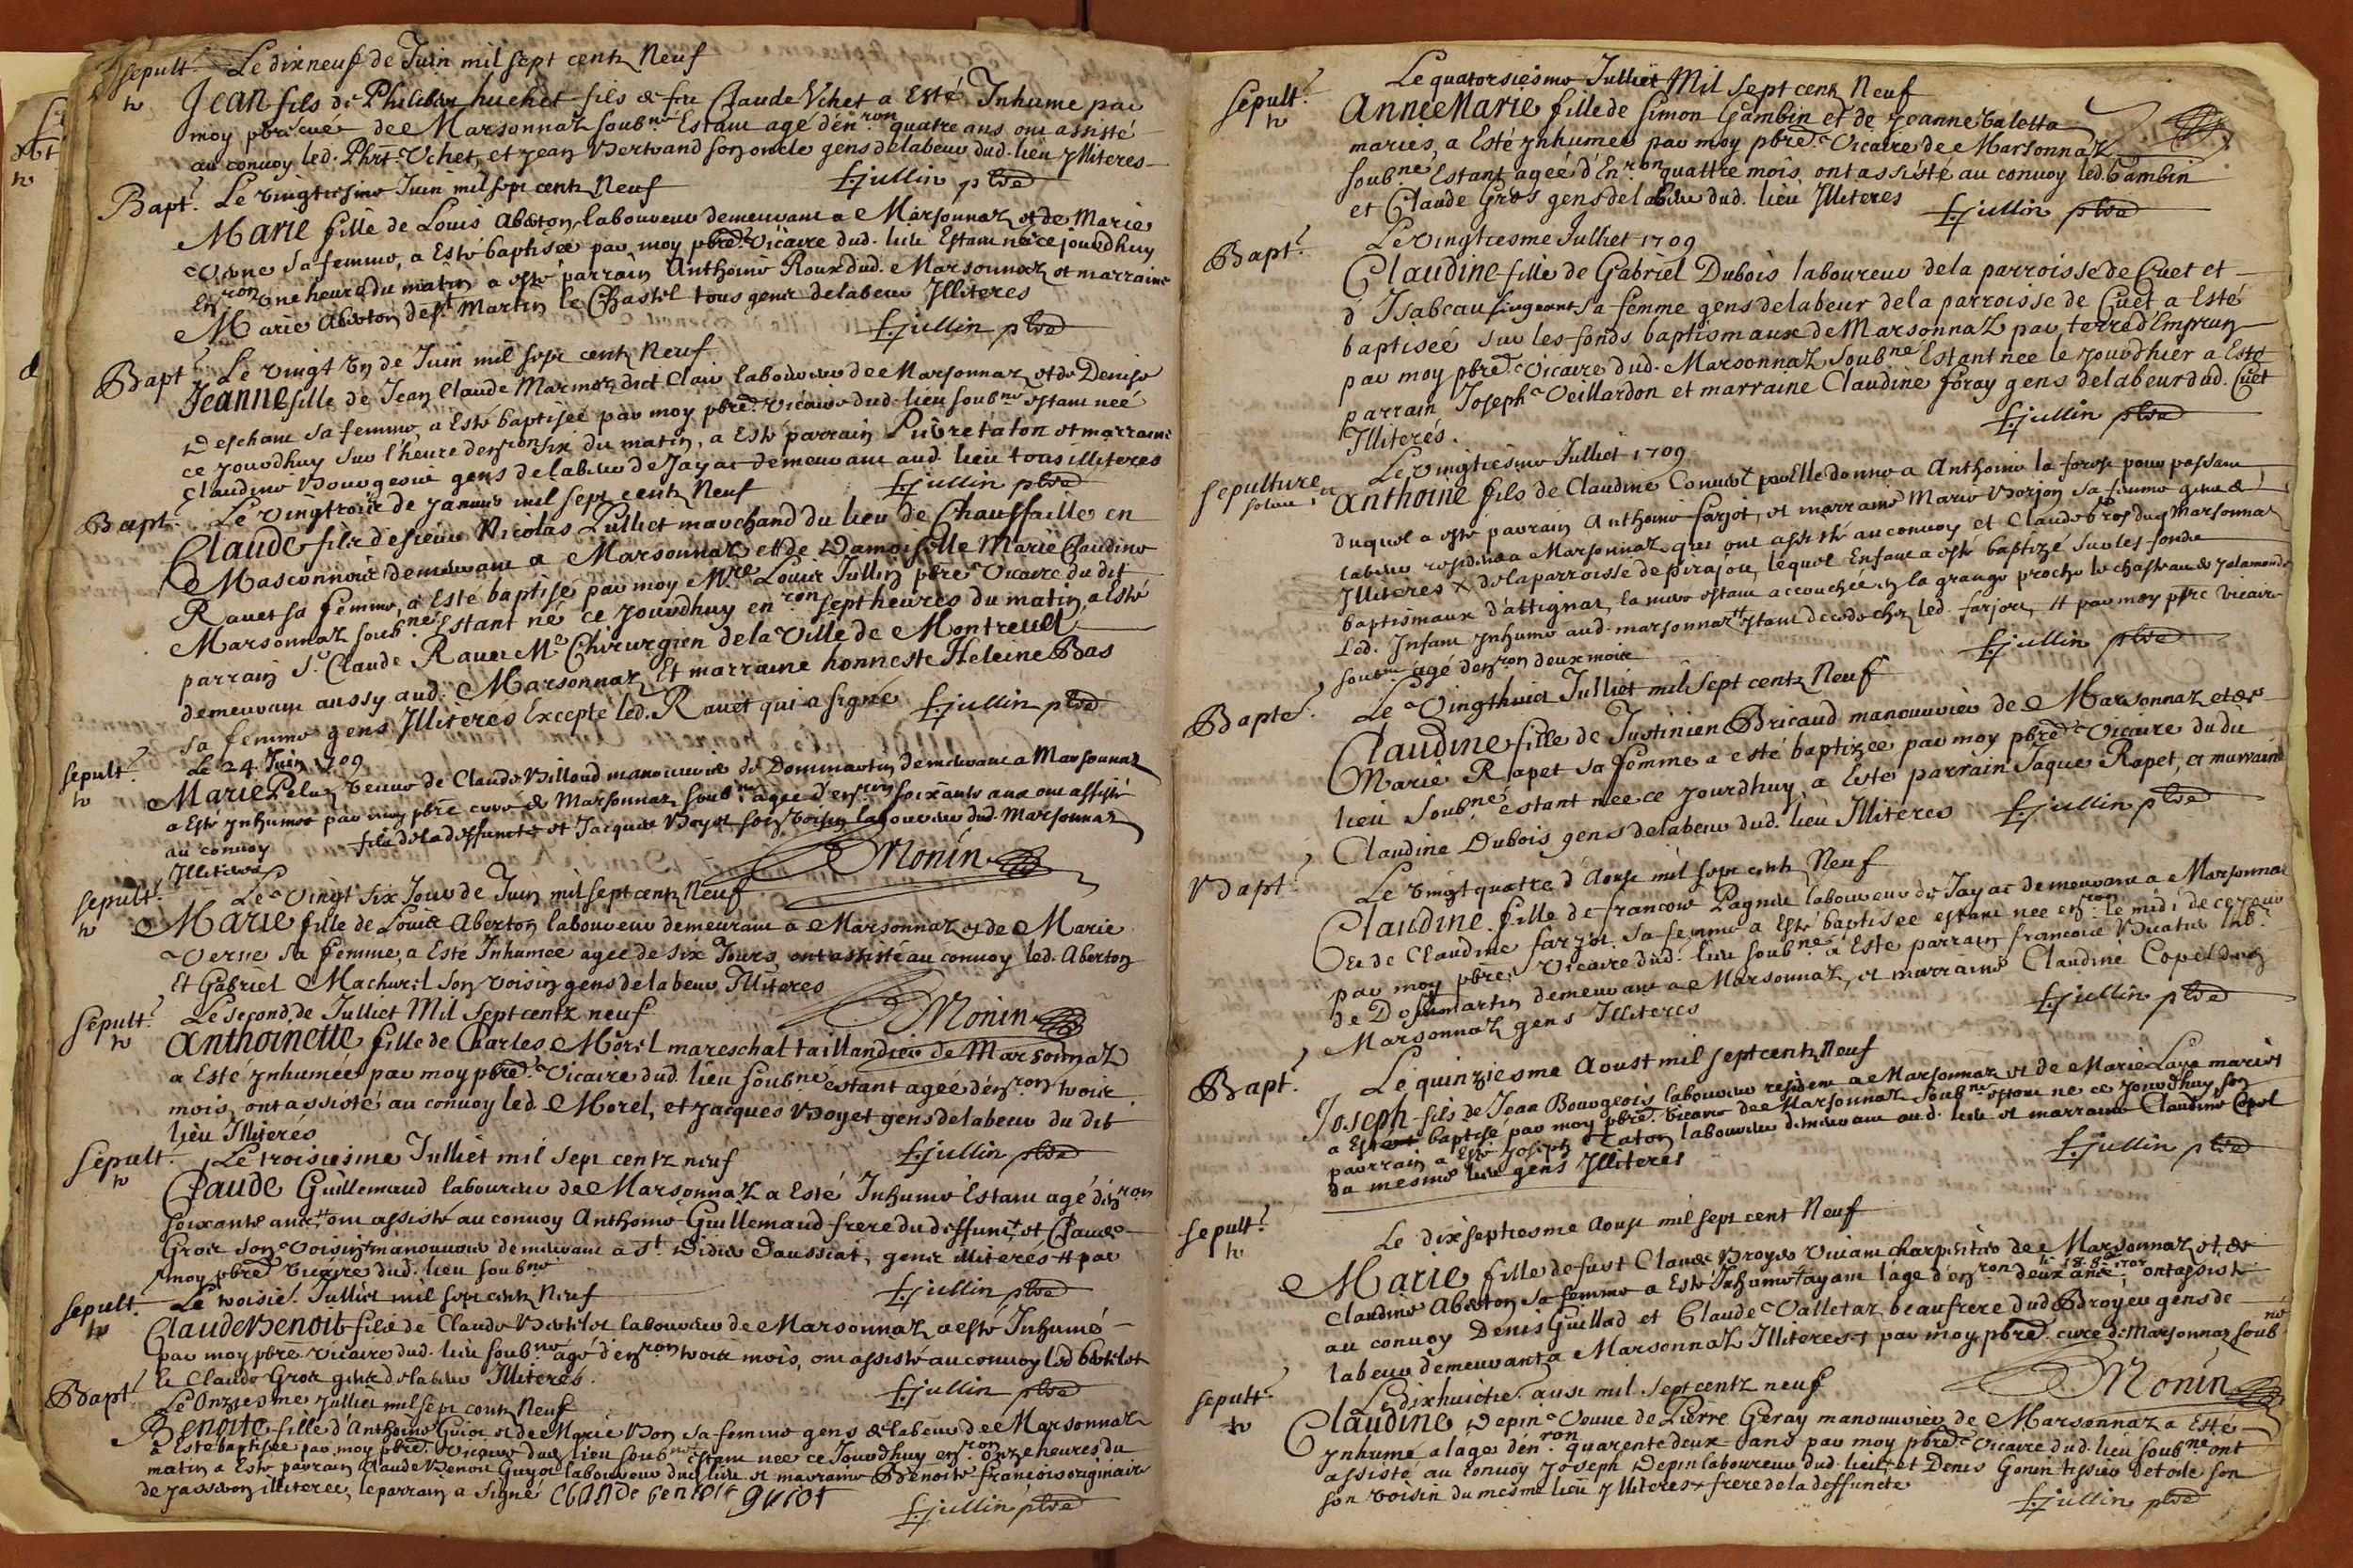 Sepult.re Le dixneuf de Juin mil sept centz Neuf
Jean fils de Philibert huchet fils de feu Claude Vchet a Esté Inhumé par
moy pbre curé de Marsonnaz soub.né Estant agé d'én.ron quatre ans, ont assisté
au convoy led. Phrt. Vchet, et Jean Bertrand son oncle gens de labeur dud. lieu Illiteres
L. jullin pbre
Bapt. Le vingtiesme Juin mil sept centz Neuf
Marie fille de Louis Aberton laboureur demeurant a Marsonnaz et de Marie
Verne sa femme, a Esté baptisée par moy pbre Vicaire dud. lieu Estant née ce jourdhuy
En.ron une heure du matin a esté parrain Anthoine Roux dud. Marsonnaz et marraine
Marie Aberton de St Martin le Chastel tous gens de labeur Illiteres
L. jullin pbre
Bapt. Le vingt Un de Juin mil sept centz Neuf
Jeanne fille de Jean Claude Marmez dict Clau laboureur de Marsonnaz et de Denise
Deschant sa femme, a Esté baptisée par moy pbre Vicaire dud. lieu soub.né estant neé
ce jourdhuy sur l'heure d'en.ron six du matin, a Esté parrain Pierre taton et marraine
Claudine Bourgeois gens de labeur de Jayat demeurant aud. lieu tous illiteres
L. jullin pbre
Bapt. Le vingtrois de Janvier mil sept centz Neuf
Claude fils de sieur Nicolas Julliet marchand du lieu de Chauffaille en
Masconnois demeurant a Marsonnaz et de Damoiselle Marie Claudine
Ravet sa femme, a Esté baptisé par moy M.re Louis Jullin pbre Vicaire du dit
Marsonnaz soub.né Estant né ce jourdhuy en.ron sept heures du matin, a esté
parrain S.r Claude Ravet M.e Chirurgien de la Ville de Montreuel
demeurant aussy aud. Marsonnaz Et marraine honneste Heleine Bas
sa femme gens Illiterés Excepté led. Ravet qui a signé L. jullin pbre
Sepult.re Le 24. Juin 1709
Marie Pelux veuve de Claude Billoud manouvrier de Dommartin demeurant a Marsonnaz
a Esté Inhumée par moy pbre curé de Marsonnaz soub.né agée d'en.ron soixante ans ont assisté
au convoy fils de la deffuncte et Jacques Boyet son voisin laboureur dud. Marsonnaz
Illiteres
Monin
Sepult.re Le Vingt six Jour de Juin mil sept centz Neuf
Marie fille de Louis Aberton laboureur demeurant a Marsonnaz et de Marie
Verne sa femme, a Esté Inhumée agée de six Jours, ont assisté au convoy led. Aberton
Et Gabriel Machurel son voisin gens de labeur Illiteres
Monin
Sepult.re Le second de Julliet Mil Sept centz neuf
Anthoinette fille de Charles Morel mareschal taillandier de Marsonnaz
a Esté ynhumée par moy pbre Vicaire dud. lieu soub.né estant agée d'en.ron trois
mois, ont assisté au convoy led. Morel, et Jacques Boyet gens de labeur du dit
lieu Illiterés
L. jullin pbre
Sepult.re Le troisiesme Julliet mil sept centz neuf
Claude Guillemaud laboureur de Marsonnaz a Esté Inhumé Estant agé d'en.ron
soixante ans, ont assisté au convoy Anthoine Guillemaud frere du deffunct et Claude
Gros son Voisin manouvrier demeurant a St Didier Daussiat, gens illiterés # par
moy pbre Vicaire dud. lieu soub.né
L. jullin pbre
Sepult.re Le troisié. Julliet mil sept centz Neuf
Claude Benoit fils de Claude Berthelot laboureur de Marsonnaz a esté Inhumé
par moy pbre Vicaire dud. lieu soub.né agé d'en.ron trois mois, ont assisté au convoy led Bertelot
Et Claude Gros gens de labeur Illiterés.
L. jullin pbre
Bapt. Le Onziesme Julliet mil sept centz Neuf
Benoite fille d'Anthoine Guiot et de Marie Bon sa femme gens de labeur de Marsonnaz
a Esté baptisée par moy pbre Vicaire dud. lieu soub.né Estant née ce Jourdhuy en.ron onze heures du
matin a Esté parrain Claude Benoit Guyot laboureur dud. lieu et marraine Benoite françois originaire
de Jasseron illiterée, le parrain a signé Claude benoit guiot
L. jullin pbre
Sepult.re Le quatorsiesme Julliet Mil sept centz Neuf
Anne Marie fille de Simon Gambin et de Jeanne Caletta
mariés, a Esté ynhumée par moy pbre Vicaire de Marsonnaz
soub.né Estant agée d'En.ron quattre mois, ont assisté au convoy led. Gambin
et Claude Gros gens de labeur dud. lieu Illiteres L. jullin pbre
Bapt. Le Vingtiesme Julliet 1709
Claudine fille de Gabriel Dubois laboureur de la parroisse de Cuet et
d'Isabeau singeant sa femme gens de labeur de la parroisse de Cuet a Esté
baptiseé sur les fonds baptismaux de Marsonnaz par terre d'Emprun
par moy pbre Vicaire dud. Marsonnaz soub.né Estant née le jourdhier a Esté
parrain Joseph Veillardon et marraine Claudine foray gens de labeur dud. Cuet
Illiterés.
L. jullin pbre
Sepulture Le vingtiesme Julliet 1709
Anthoine fils de Claudine Convert
duquel a esté parrain Anthoine farjot, et marraine Marie Borjon sa femme gens de
labeur residens a Marsonnaz qui ont assisté au convoy et Claude Gros dud Marsonnaz
Illiteres X de la parroisse de pirajou, lequel Enfant a esté baptizé sur les fonds
baptismaux d'attignat, la mere estant accouchée en la grange proche le chasteau de Jalamonde
Led. Infant ynhumé aud. marsonnaz Estant decedé chez led. farjot, # par moy pbre vicaire
soub.né agé d'en.ron deux mois
L. jullin pbre
Bapte. Le Vingthuict Julliet mil sept centz Neuf
Claudine fille de Justinien Bricaud manouvrier de Marsonnaz et de
Marie Rapet sa femme a esté baptizée par moy pbre Vicaire dudit
lieu soub.né estant née ce jourdhuy, a Esté parrain Jaques Rapet, et marraine
Claudine Dubois gens de labeur dud. lieu Illiteres L. jullin pbre
Bapt. Le vingt quatre d'Aoust mil sept centz Neuf
Claudine fille de francois Pagneu laboureur de Jayat demeurant a Marsonnaz
Et de Claudine farjot sa femme a Esté baptisée estant née en.ron le midi de ce jour
par moy pbre Vicaire dud. lieu soub.né a Esté parrain francois Buatier lab.
de Dommartin demeurant a Marsonnaz, et marraine Claudine Copel dud
Marsonnaz gens Illiteres
L. jullin pbre
Bapt. Le quinziesme Aoust mil sept centz Neuf
Joseph fils de Jean Bourgeois laboureur resident a Marsonnaz et de Marie Laye mariés
a Esté baptisé par moy pbre Vicaire de Marsonnaz soub.né estant né ce jourdhuy son
parrain a Esté Joseph Taton laboureur demeurant aud. lieu et marraine Claudine Copel
du mesme lieu gens Illiteres
L. jullin pbre
Sepult.re Le dixseptiesme Aoust mil sept cent Neuf
Marie fille de fust Claude Broyer vivant charpentier de Marsonnaz et de
Claudine Aberton sa femme a Esté Inhumée ayant l'age d'en.ron deux ans, ont assisté
au convoy Denis Guillad et Claude Valletaz beaufrere dud Broyer gens de
labeur demeurant a Marsonnaz Illiteres + par moy pbre curé de Marsonnaz soub.né
Monin
Sepult.re Le dixhuictie. aust mil sept centz neuf
Claudine Depin Veuve de Pierre Geray manouvrier de Marsonnaz a Esté
ynhumé a l'age d'en.ron quarente deux ans par moy pbre Vicaire dud. lieu soub.né ont
assisté au convoy Joseph Depin laboureur dud. lieu + et Denis Gonin tissier de toile son
son voisin du mesme lieu Illiteres + frere de la deffuncte
L. jullin pbre